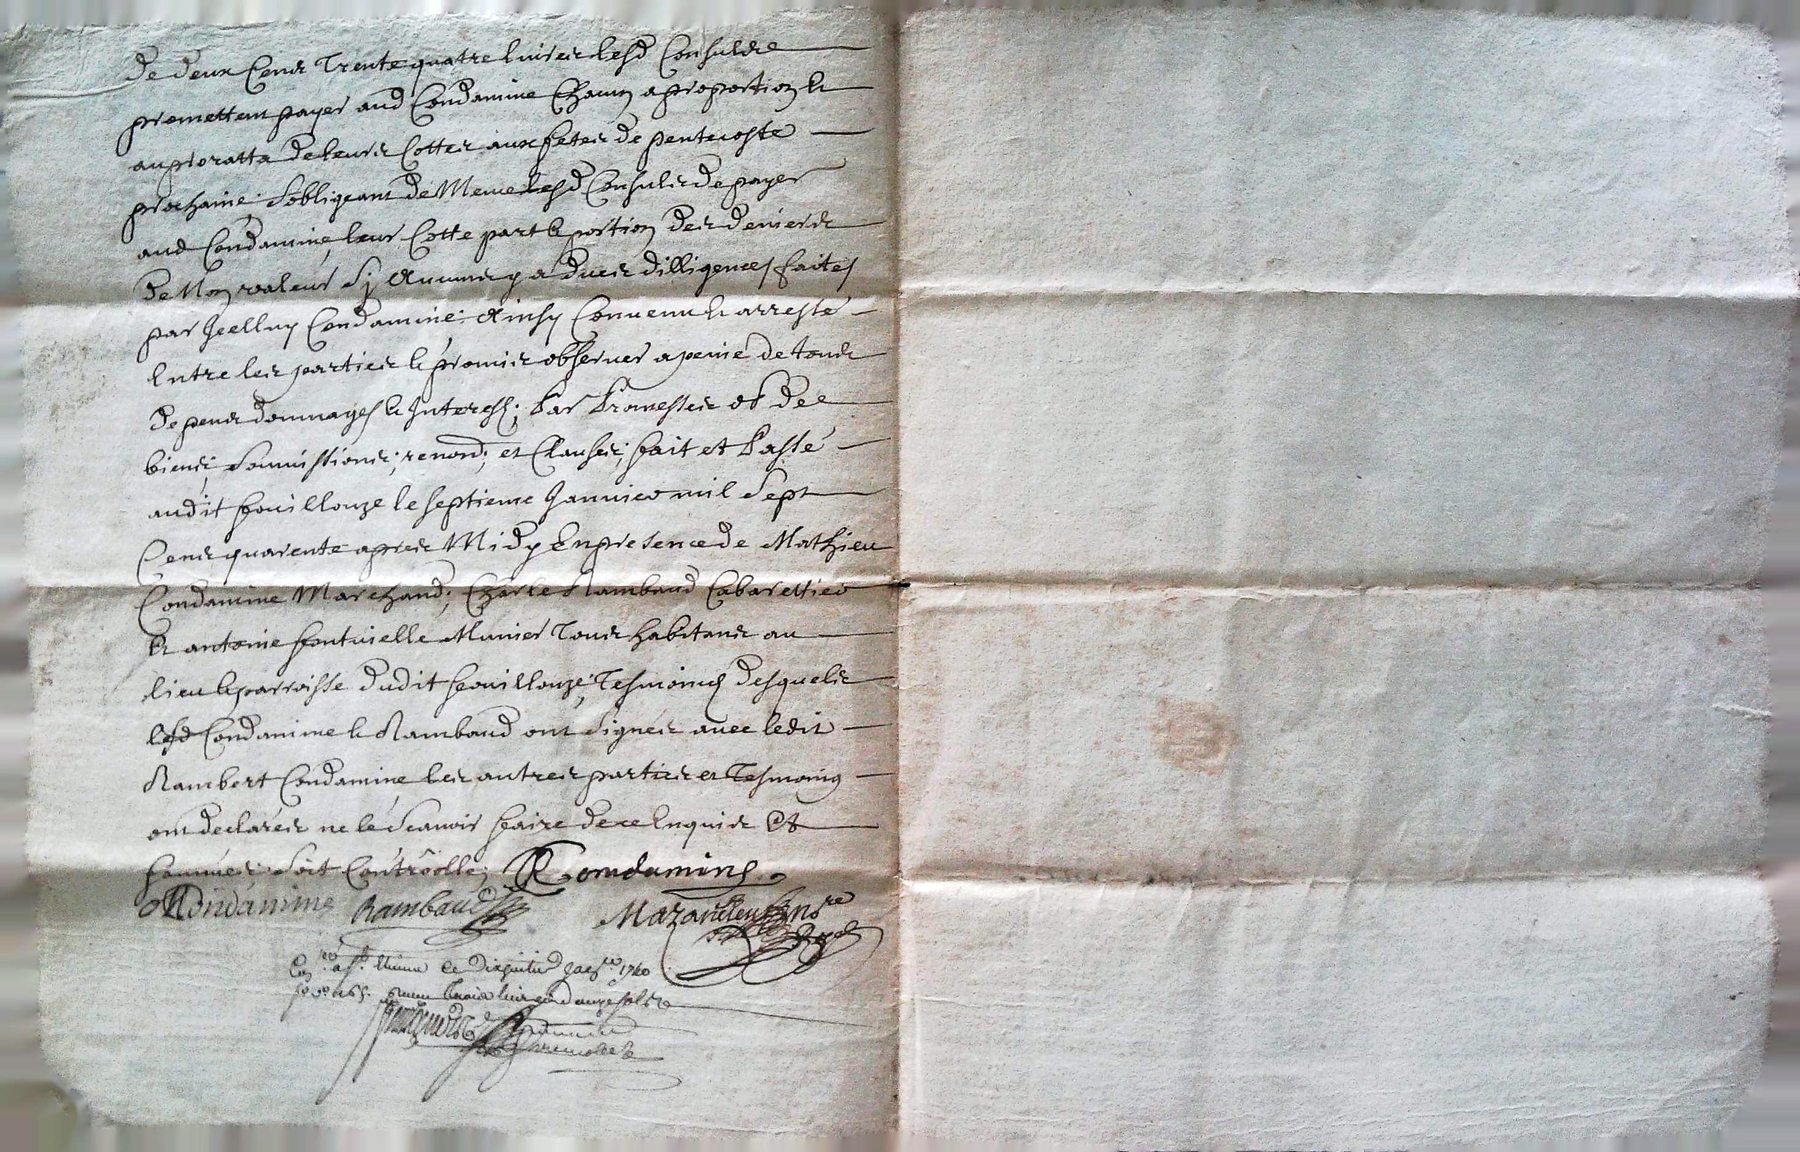 de deux Cens trente quatre livres lesd Consuls
promettent payer aud Condamine Chacun a proportion et
au proratta de leurs Cottes aux fetes de pentecoste
prochaine; s'obligeant de Meme lesd Consuls de payer
aud Condamine, leur Cotte part et portion des deniers
de Non valeur sy Aucuns y a dues dilligences faites
par Jcelluy Condamine: Ainsy Convenu et arresté
Entre les parties et promis observer a peine de tous
depens dommages et Interests; Par Promesses ob des
biens; soumissions; renond; et Clauses; fait et Passé
audit fouillouze le septieme Janvier mil sept
Cens quarente apres Midy En presence de Mathieu
Condamine Marchand; Charle Rambaud Cabarettier
Et antoine fontvielle Munier Tous habitans au
lieu et parroisse dudit fouillouze; Tesmoins desquels
lesd Condamine et Rambaud ont signés avec ledit
Rambert Condamine les autres parties et Tesmoins
ont declarés ne le Scavoir faire de ce Enquis Et
sommés: soit Contrôlle; R Condamine
MCondamine Rambaud Mazandieu nore
le dixhuitie 1740
livres douze sols